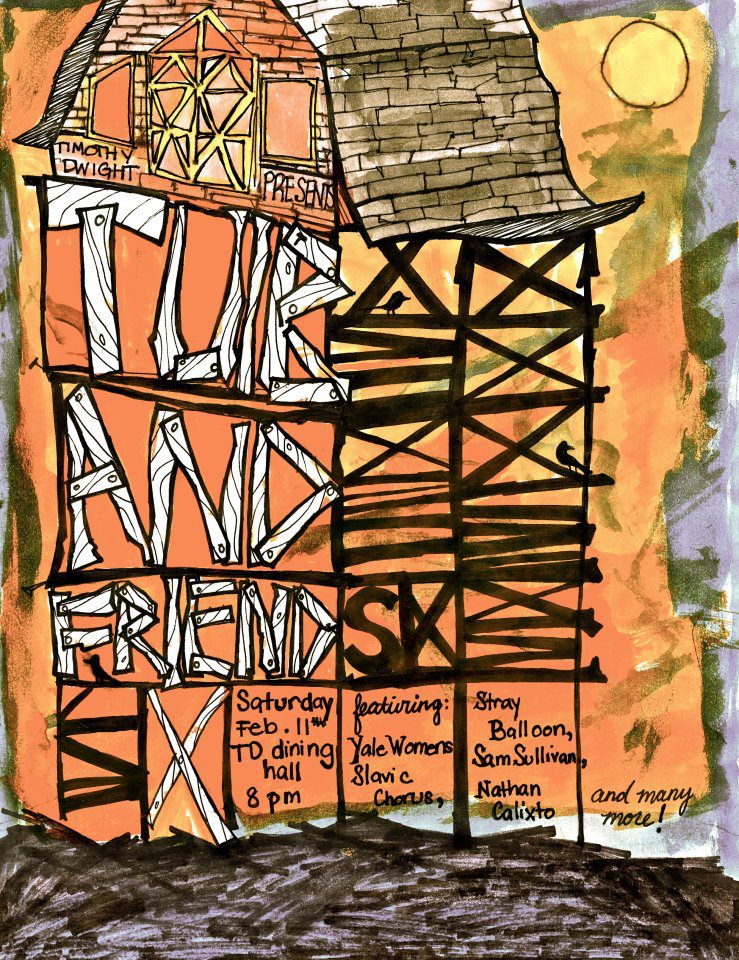 TIMOTHY
DWIGHT
PRESENTS
TUIB
AND
FRIENDS
Saturday
Feb. 11TH
TD dining
hall
8 pm
featuring:
Yale Womens
Slavic
Chorus,
Stray
Balloon,
Sam Sullivan,
Nathan
Calixto
and many
more!